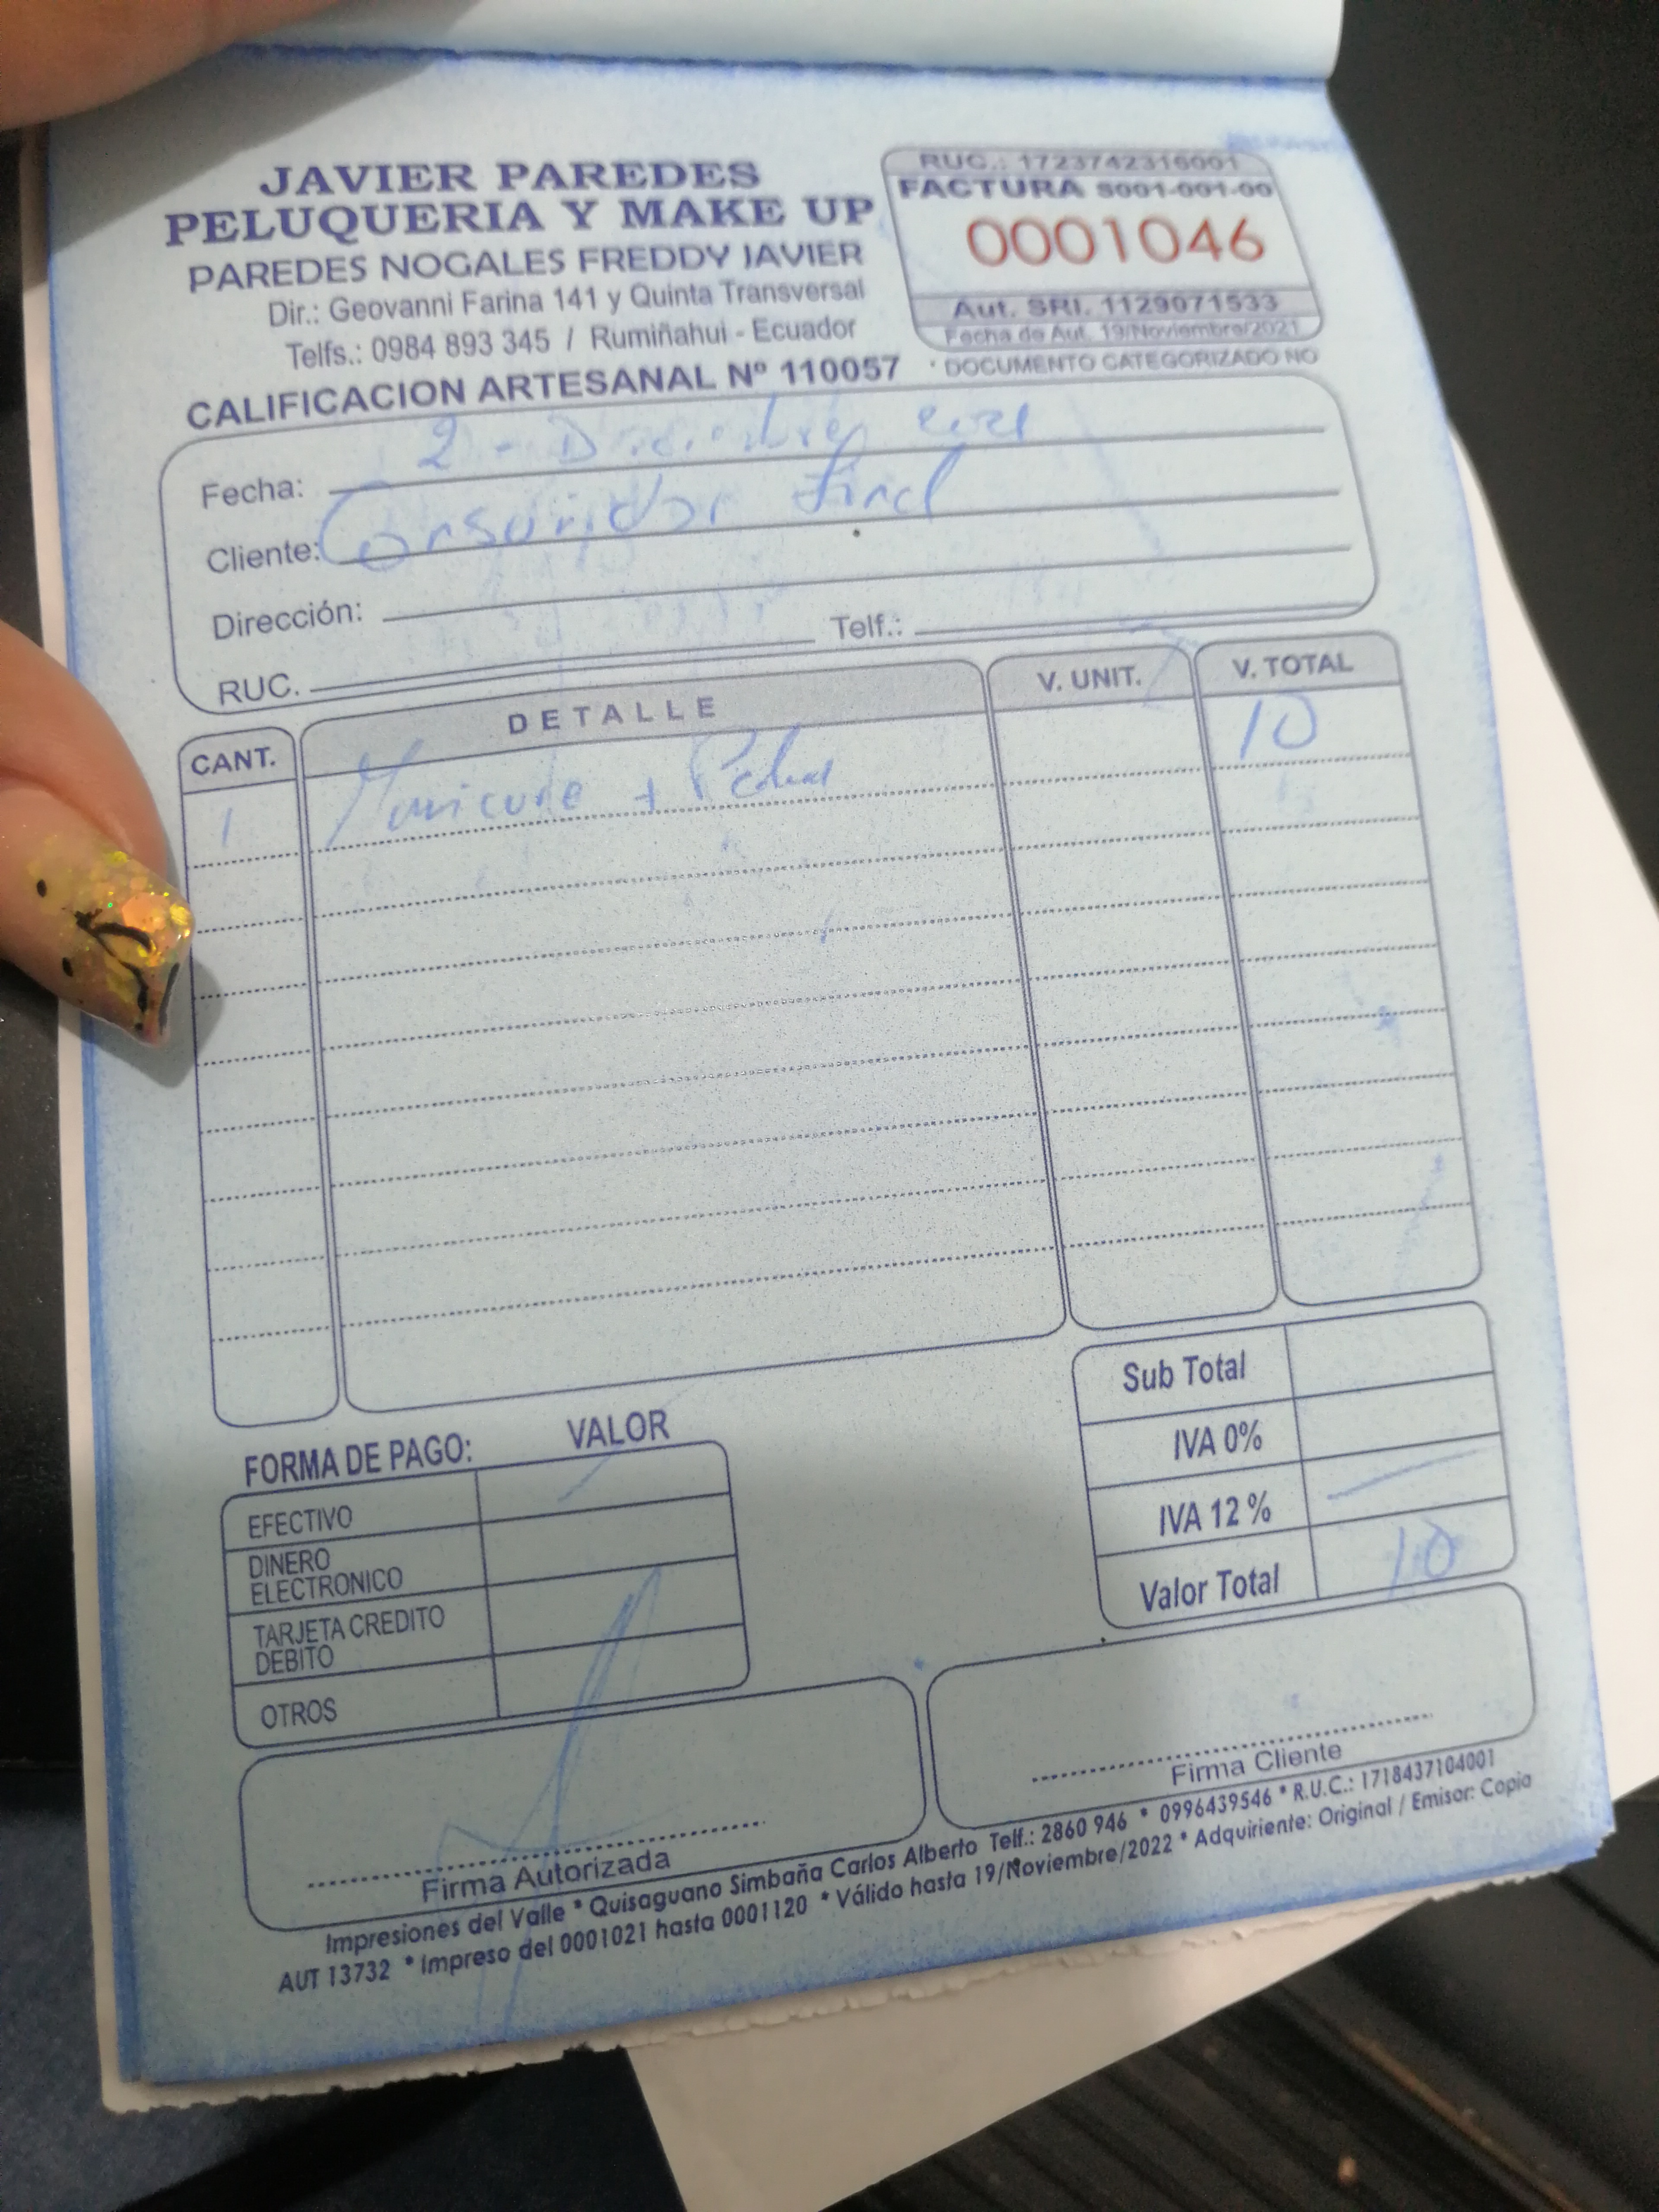 JAVIER PAREDES
PELUQUERIA Y MAKE UP
PAREDES NOGALES FREDDY JAVIER
Dir.: Geovanni Farina 141 y Quinta Transversal
Telfs.: 0984 893 345 / Rumiñahui - Ecuador
CALIFICACION ARTESANAL Nº 110057
RUC.: 1723742316001
FACTURA S001-001-00
0001046
Aut. SRI. 1129071533
Fecha de Aut. 19/Noviembre/2021
* DOCUMENTO CATEGORIZADO NO
Fecha: 2 - Diciembre 2021
Cliente: Consumidor Final
Dirección:
RUC. Telf.:
CANT. DETALLE V. UNIT. V. TOTAL
1 Manicure + 10
Sub Total
IVA 0%
IVA 12 %
Valor Total 10
FORMA DE PAGO: VALOR
EFECTIVO
DINERO
ELECTRONICO
TARJETA CREDITO
DEBITO
OTROS
Firma Autorizada
Firma Cliente
Impresiones del Valle * Quisaguano Simbaña Carlos Alberto Telf.: 2860 946 * 0996439546 * R.U.C.: 1718437104001
AUT 13732 * Impreso del 0001021 hasta 0001120 * Válido hasta 19/Noviembre/2022 * Adquiriente: Original / Emisor: Copia